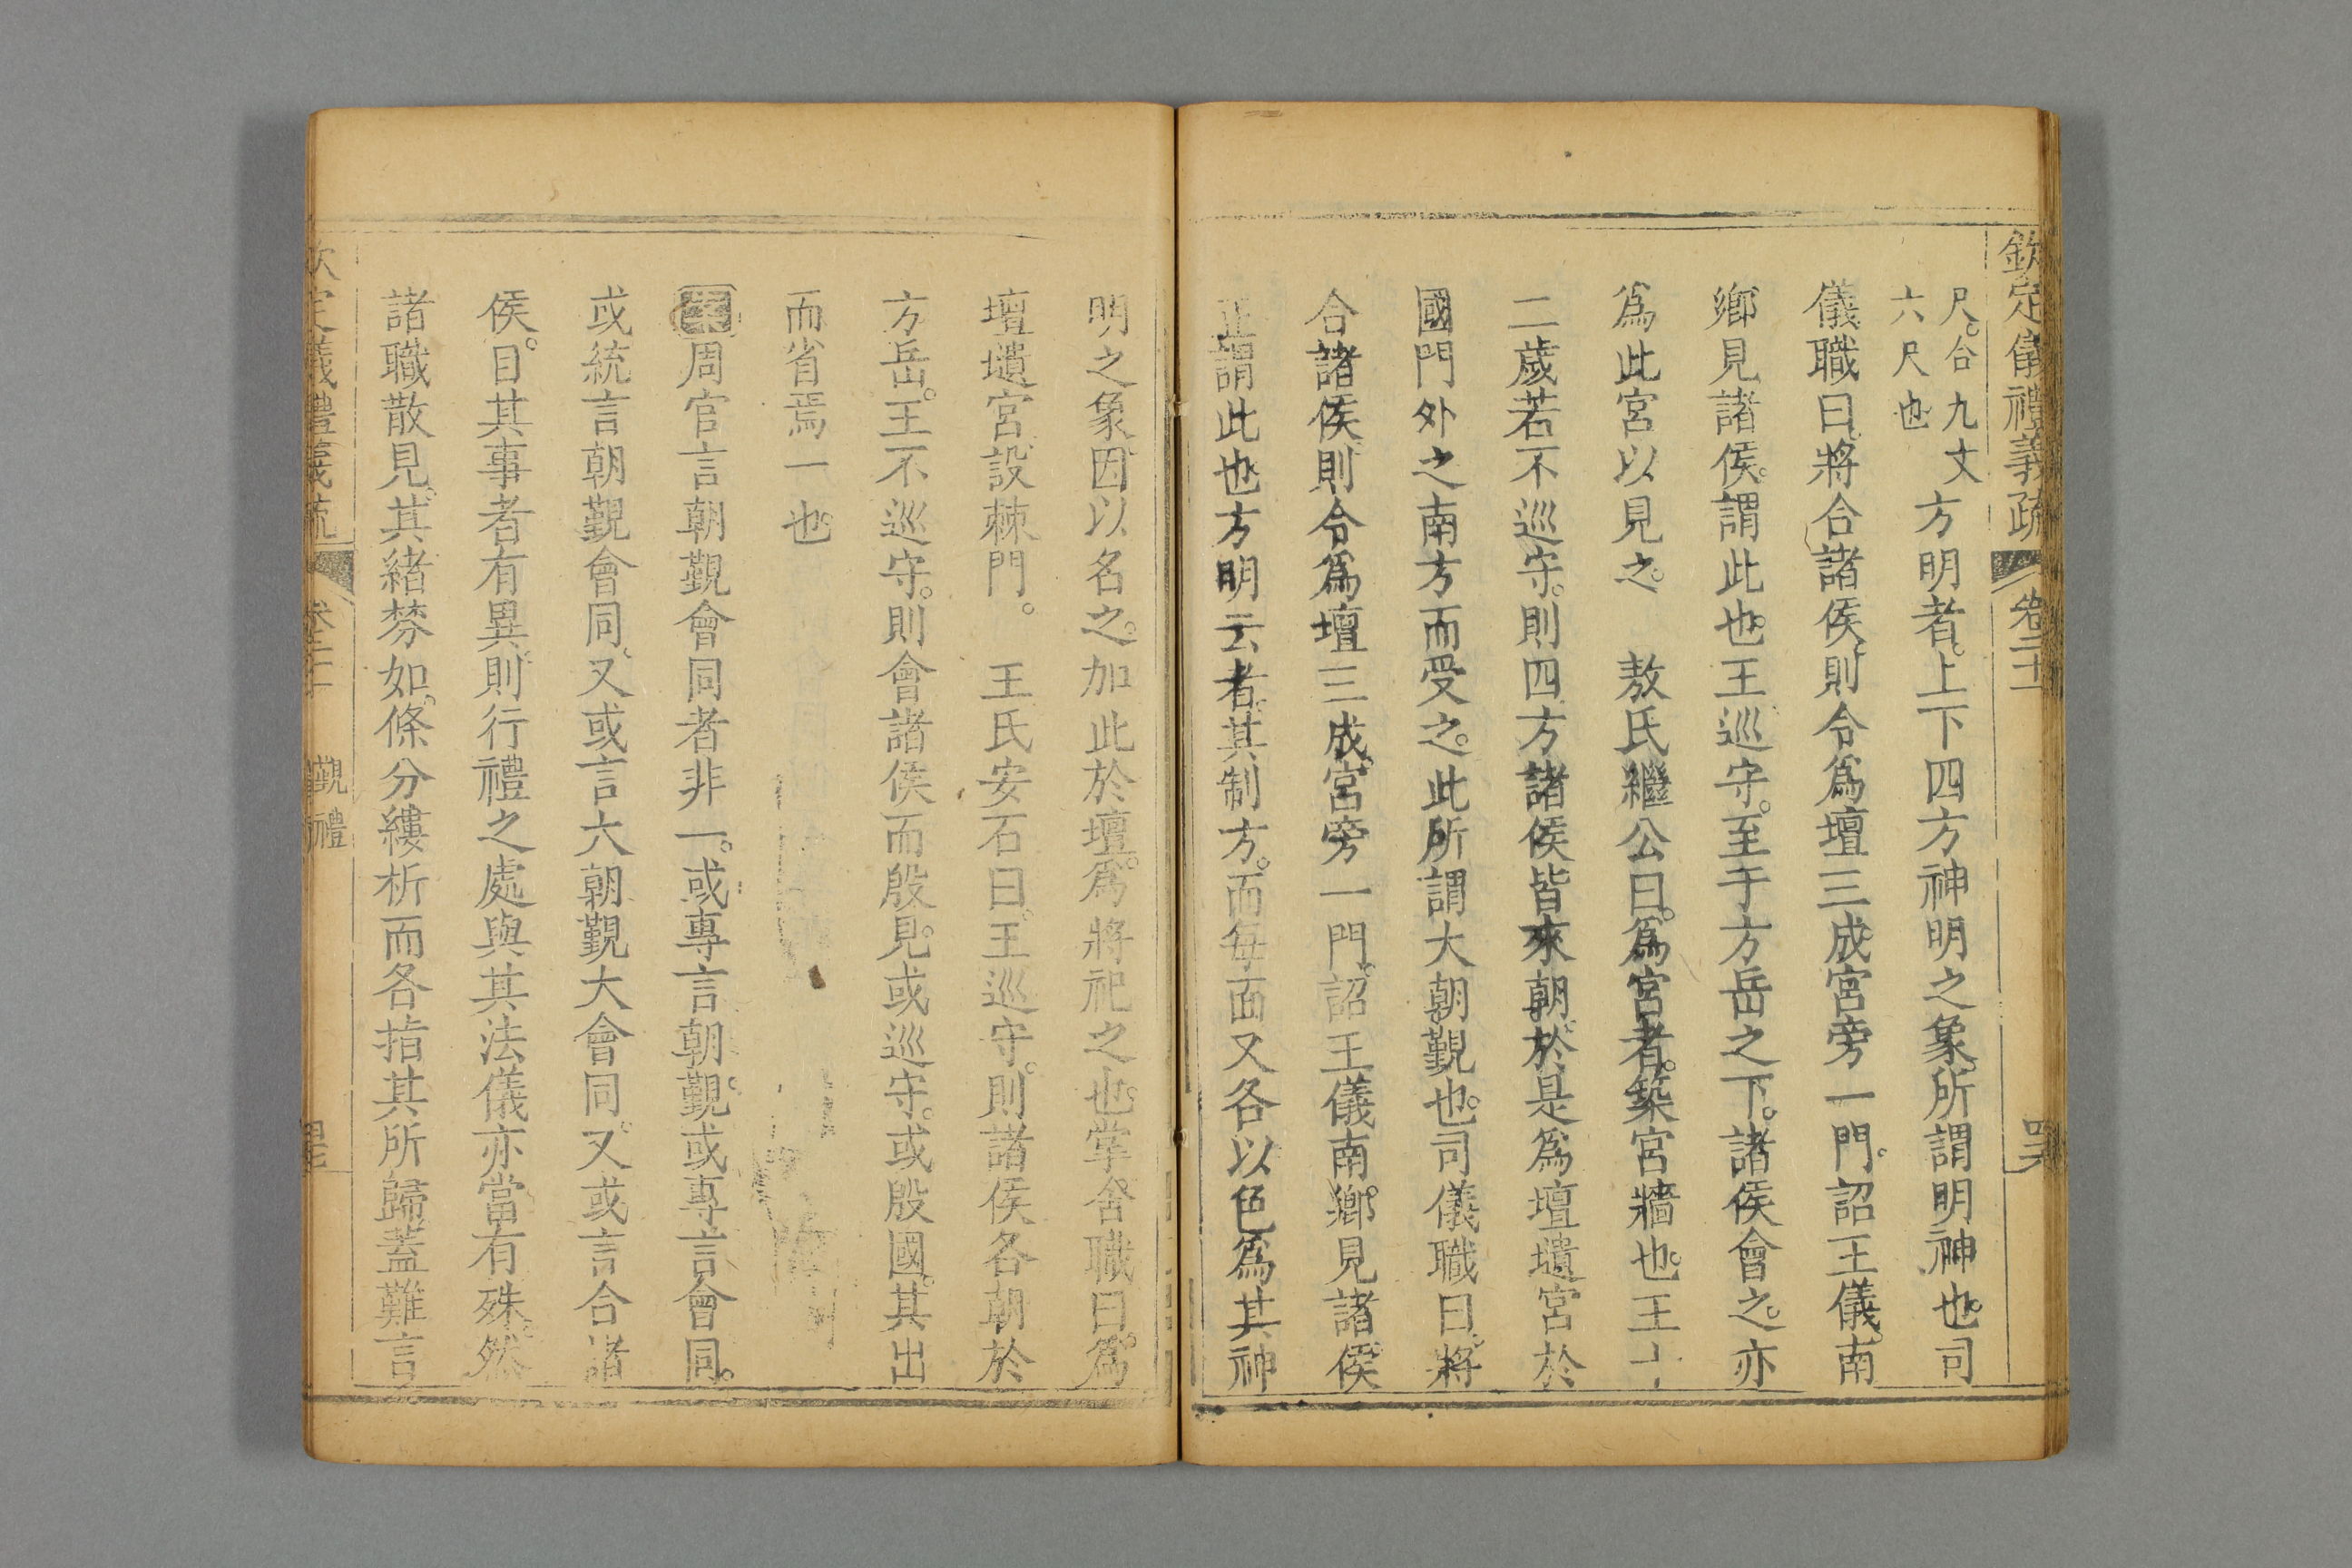 欽定儀禮義疏 卷二十 四六
尺。合九丈
六尺也
方明者。上下四方神明之象。所謂明神也。司
儀職曰。將合諸侯。則令爲壇三成。宮旁一門。詔王儀。南
鄉見諸侯。謂此也。王巡守。至于方岳之下。諸侯會之。亦
爲此宮以見之。 敖氏繼公曰。爲宮者。築宮牆也。王十
二歲若不巡守。則四方諸侯皆來朝。於是爲壇壝宮於
國門外之南方而受之。此所謂大朝覲也。司儀職曰。將
合諸侯。則令爲壇三成。宮旁一門。詔王儀南鄉見諸侯
正謂此也方明云者。其制方。而每面又各以色爲其神
明之象。因以名之。加此於壇。爲將祀之也。掌舍職曰。爲
壇壝宮。設棘門。 王氏安石曰。王巡守。則諸侯各朝於
方岳。王不巡守。則會諸侯而殷見。或巡守。或殷國。其出
而省焉一也。
案周官言朝覲會同者非一。或專言朝覲。或專言會同。
或統言朝覲會同。又或言大朝覲大會同。又或言合諸
侯。目其事者有異。則行禮之處與其法儀亦當有殊。然
諸職散見。其緒棼如。條分縷析而各指其所歸蓋難言
欽定儀禮義疏 卷二十 覲禮 四七